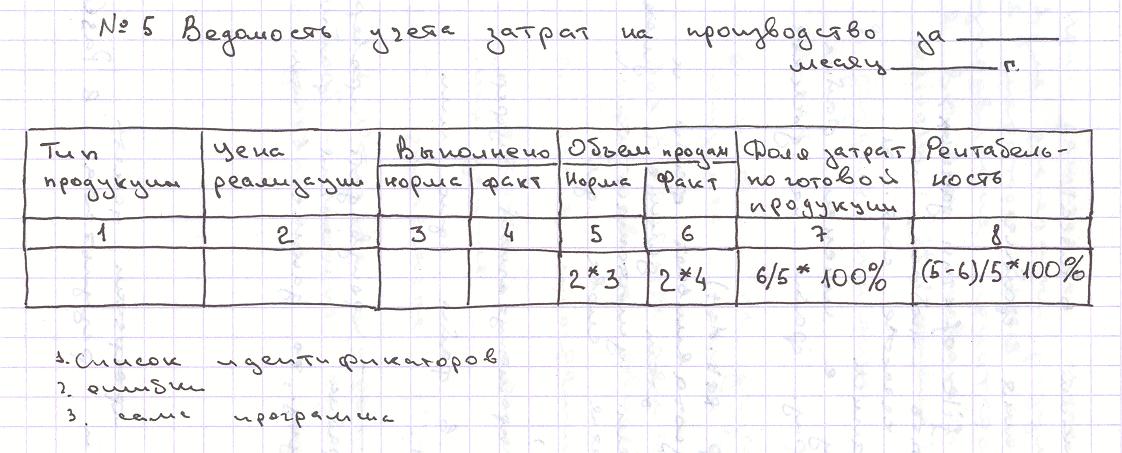 № 5 Ведомость учета затрат на производство за
месяц г.
Тип продукции
Цена реализации
Выполнено
Объем продаж
Доля затрат по готовой продукции
Рентабель-
ность
норма факт норма факт
1 2 3 4 5 6 7 8
2*3 2*4 6/5*100% (5-6)/5*100%
1. Список идентификаторов
2. ошибки
3. сама программа